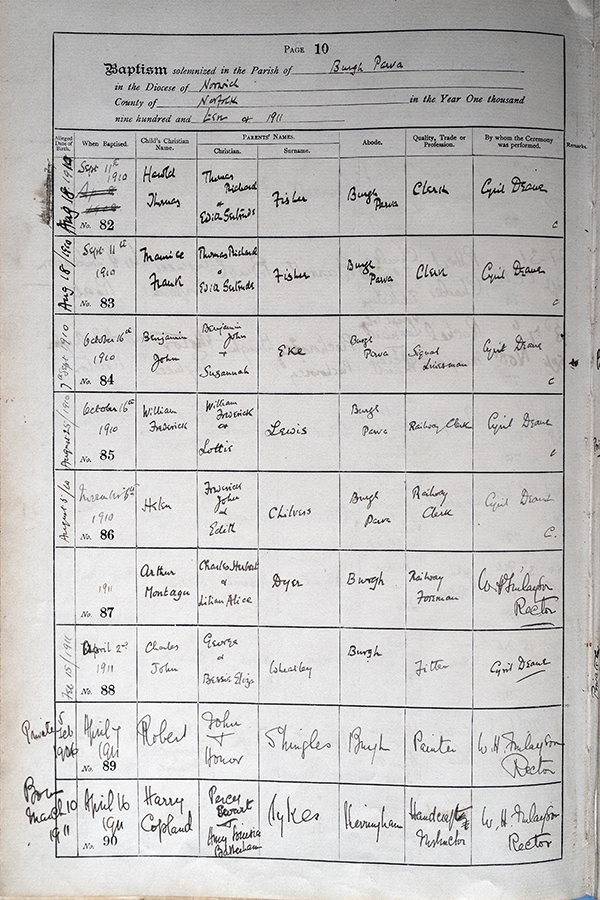 PAGE 10
Baptism solemnized in the Parish of Burgh Parva
in the Diocese of Norwich
County of Norfolk in the Year One thousand
nine hundred and ten & 1911
Alleged Date of Birth. When Baptised. Child's Christian Name. PARENTS' NAMES. Christian. Surname. Abode. Quality, Trade or Profession. By whom the Ceremony was performed. Remarks.
Aug 18 1910
Sept 11th 1910
No. 82
Harold Thomas
Thomas Richard & Edith Gertrude
Fisher
Burgh Parva
Clerk
Cyril Deane
C
Aug 18/1910
Sept 11th 1910
No. 83
Maurice Frank
Thomas Richard & Edith Gertrude
Fisher
Burgh Parva
Clerk
Cyril Deane
C
7th Sept 1910
October 16th 1910
No. 84
Benjamin John
Benjamin John + Susannah
Eke
Burgh Parva
Signal
Cyril Deane
C
August 25/1910
October 16th 1910
No. 85
William Frederick
William Frederick & Lottie
Lewis
Burgh Parva
Railway Clerk
Cyril Deane
C
August 5/10
November 6th 1910
No. 86
Helen
Frederick John & Edith
Chilvers
Burgh Parva
Railway Clerk
Cyril Deane
C.
1911
No. 87
Arthur Montagu
Charles Herbert & Lilian Alice
Dyer
Burgh
Railway Foreman
W. H. Finlayson Rector
Feb 15/1911
April 2nd 1911
No. 88
Charles John
George & Bessie Eliza
Wheatley
Burgh
Fitter
Cyril Deane
Private 5 Feb
April 7 1911
No. 89
Robert
John + Honor
Shingles
Burgh
Painter
W. H. Finlayson Rector
Born March 10 1911
April 16 1911
No. 90
Harry Copland
Percy Stewart
Amy
Sykes
Herringham
Handcraft Instructor
W. H. Finlayson Rector